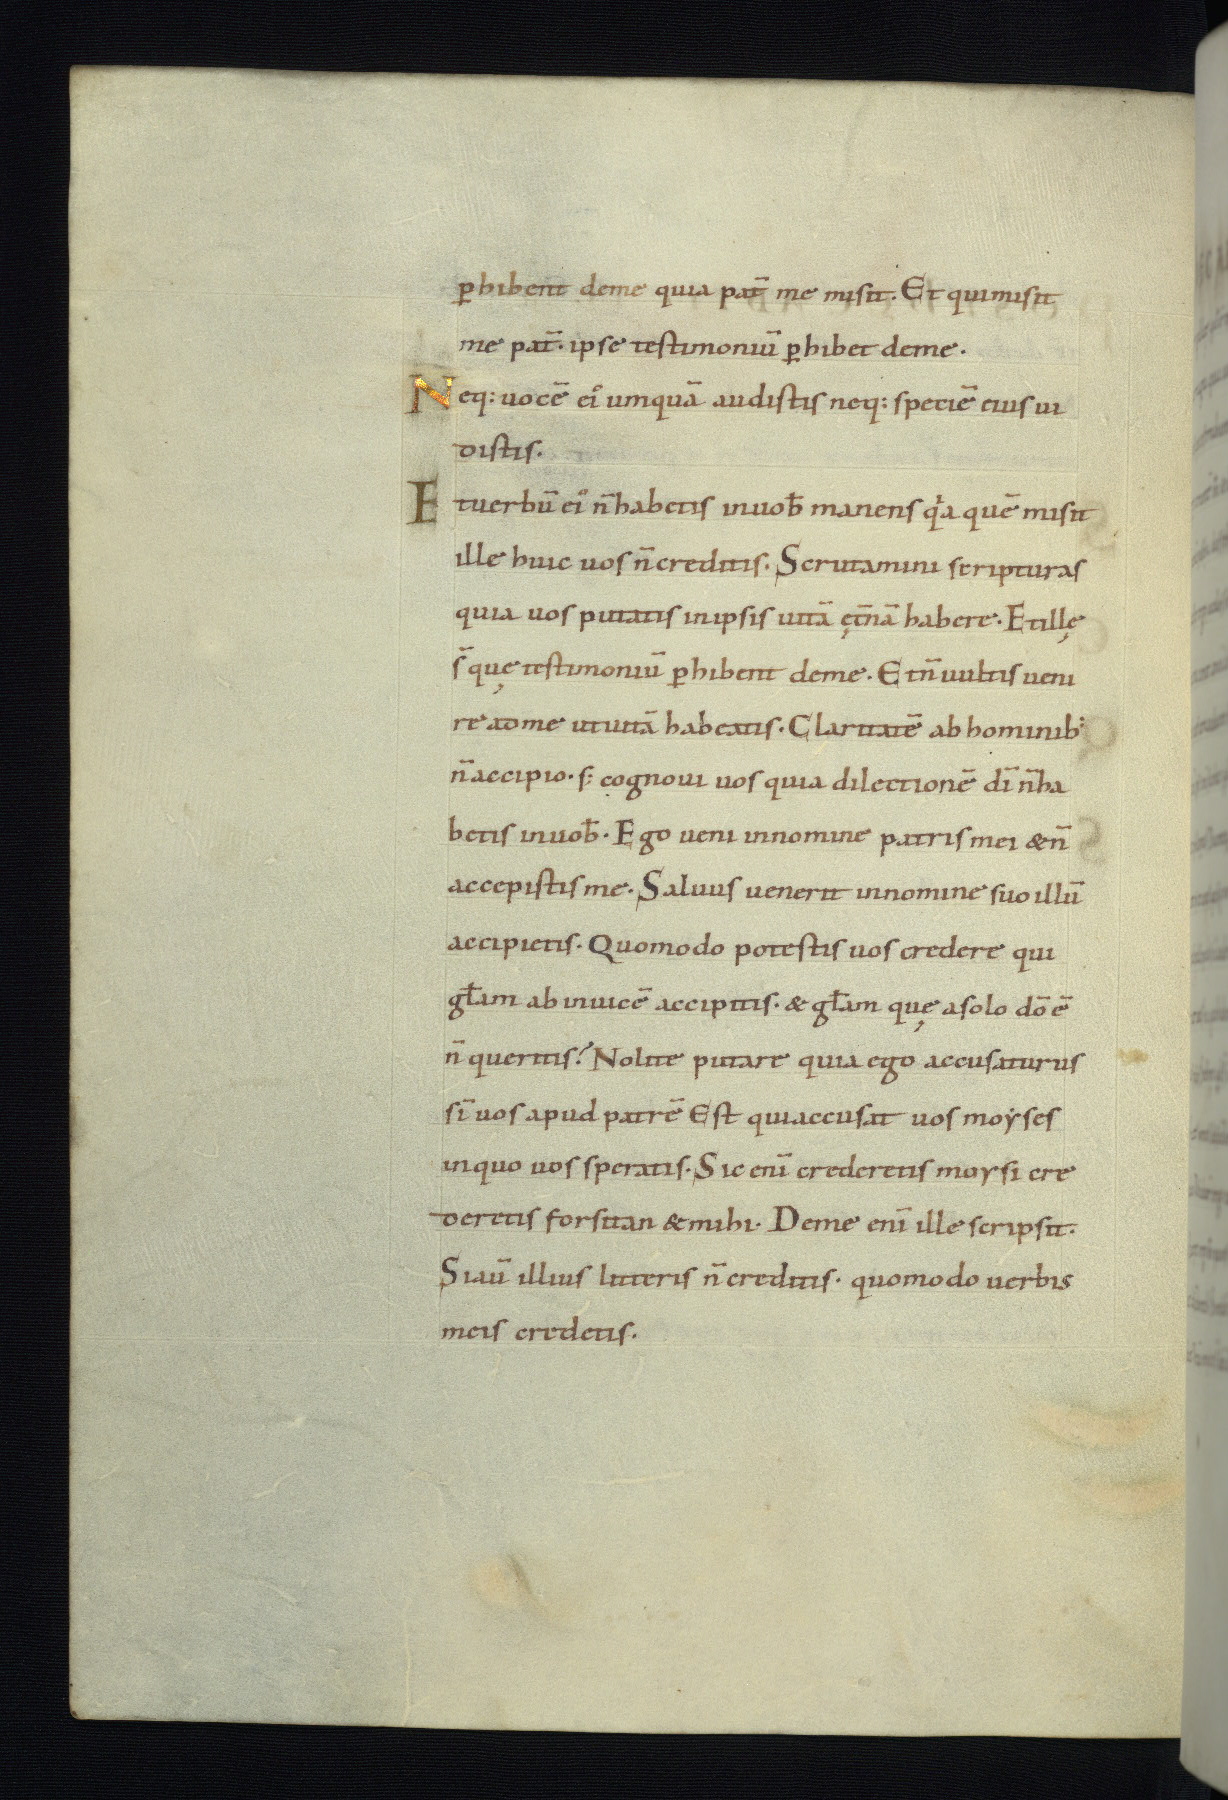 ꝑhibent deme quia pat̄ me misit. Et quimisit
me pat̄. ipse testimoniū ꝑhibet deme.
Neq: uocē ei᾽ umquā audistis neq: speciē eius ui
distis.
Et uerbū ei᾽ n̄ habetis inuob̄ manens qͥa quē misit
ille huic uos n̄ creditis. Scrutamini scripturas
quia uos putatis inipsis uitā ęt̄nā habere. Et illę
s̄ quę testimoniū ꝑhibent deme. Et n̄ uultis ueni
re adme utuitā habeatis. Claritatē ab hominib;
n̄ accipio. s: cognoui uos quia dilectionē dī n̄ ha
betis inuob̄. Ego ueni innomine patris mei & n̄
accepistis me. Salius uenerit innomine suo illū
accipietis. Quomodo potestis uos credere qui
gl̄am ab inuicē accipitis. & gl̄am quę asolo dō ē
n̄ queritis? Nolite putare quia ego accusaturus
sī uos apud patrē Est quiaccusat uos moẏses
inquo uos speratis. Sic enī crederetis moysi cre
deretis forsitan & mihi. Deme enī ille scripsit.
Siaū illius litteris n̄ creditis. quomodo uerbis
meis credetis.